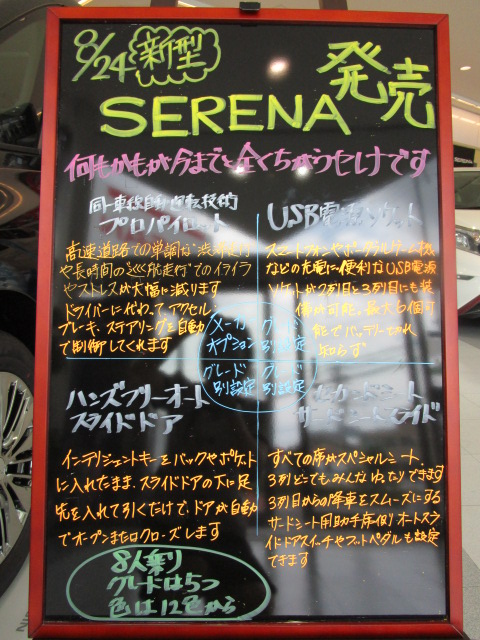 8/24 新型
SERENA 発売
何もかもが今までと全くちがうだけです
同一車線自動運転技術
プロパイロット
高速道路での単調な渋滞走行
や長時間の巡航走行でのイライラ
やストレスが大幅に減ります
ドライバーに代わってアクセル・
ブレーキ、ステアリングを自動
で制御してくれます
USB電源ソケット
スマートフォンやポータブルゲーム機
などの充電に便利なUSB電源
ソケットが2列目と3列目にも装
備が可能。最大6個可
能でバッテリー切れ
知らず
メーカー
オプション
グレード
別設定
グレード
別設定
グレード
別設定
ハンズフリーオート
スライドドア
インテリジェントキーをバックやポケット
に入れたまま、スライドドアの下に足
先を入れて引くだけで、ドアが自動
でオープンまたはクローズします
セカンドシート
サードシートスライド
すべての席がスペシャルシート
3列どこでもみんなゆったりできます
3列目からの降車をスムーズにする
サードシート用助手席側オートスラ
イドドアスイッチやフットペダルも設定
できます
8人乗り
グレードは5つ
色は12色から